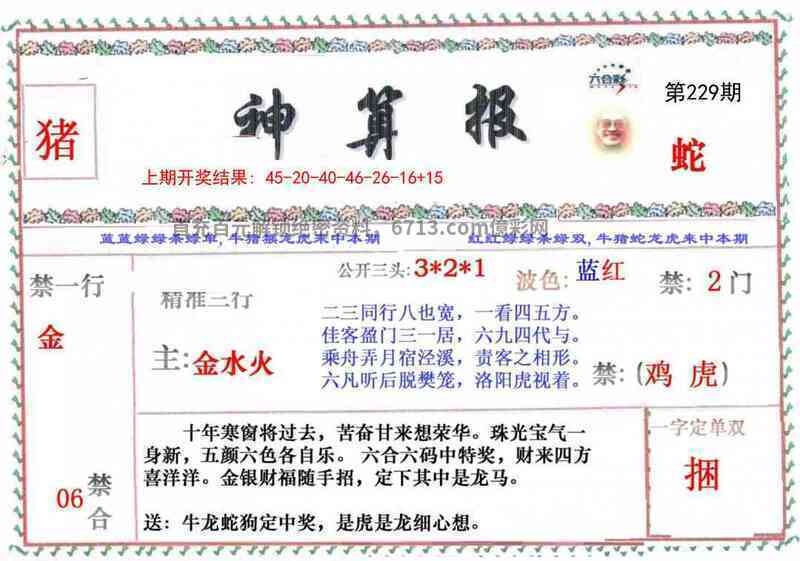 六合彩
第229期
猪
神算报
蛇
上期开奖结果：45-20-40-46-26-16+15
直充百元解锁绝密资料：6713.com億彩网
牛猪猴龙虎来中本期
红红绿绿条绿双,牛猪蛇龙虎来中本期
禁一行
金
公开三头:3*2*1
波色:蓝红
禁:2门
精准三行
主:金水火
二三同行八也宽，一看四五方。
佳客盈门三一居，六九四代与。
乘舟弄月宿泾溪，责客之相形。
六凡听后脱樊笼，洛阳虎视着。
禁:(鸡 虎)
十年寒窗将过去，苦奋甘来想荣华。珠光宝气一
身新，五颜六色各自乐。 六合六码中特奖，财来四方
喜洋洋。金银财福随手招，定下其中是龙马。
送：牛龙蛇狗定中奖，是虎是龙细心想。
06
禁合
一字定单双
捆